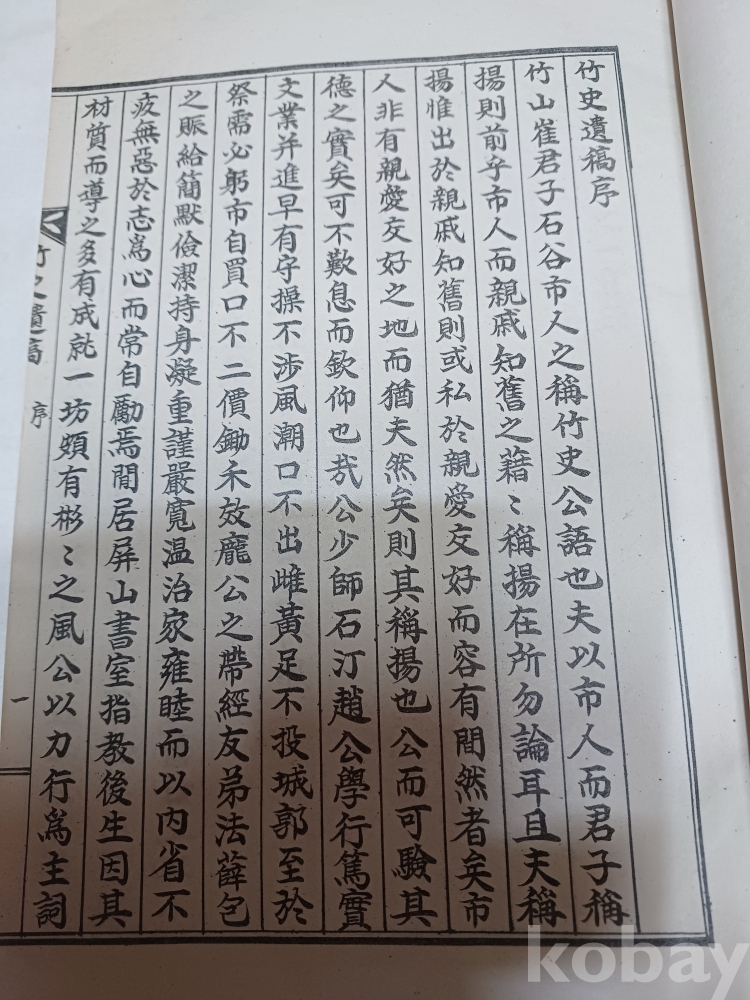 竹史遺稿序
竹山崔君子石谷市人之稱竹史公語也夫以市人而君子稱
揚則前乎市人而親戚知舊之藉〻稱揚在所勿論耳且夫稱
揚惟出於親戚知舊則或私於親愛交好而容有間然者矣市
人非有親愛交好之地而猶夫然矣則其稱揚也公而可驗其
德之實矣可不歎息而欽仰也哉公少師石汀趙公學行篤實
文業并進早有守操不涉風潮口不出雌黃足不投城郭至於
祭需必躬市自買口不二價鋤禾效龐公之帶經友弟法薛包
之賑給簡默儉潔持身凝重謹嚴寬温治家雍睦而以内省不
疚無惡於志爲心而常自勵焉閒居屏山書室指教後生因其
材質而導之多有成就一坊頗有彬〻之風公以力行爲主詞
竹史遺稿 序 一
kobay